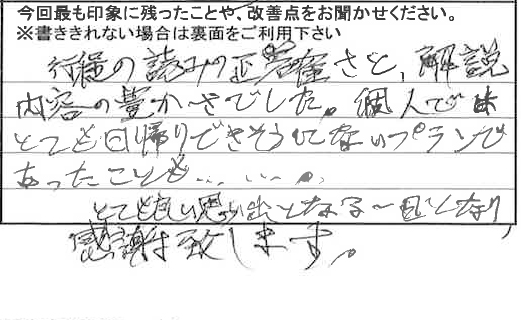 今回最も印象に残ったことや、改善点をお聞かせください。
※書ききれない場合は裏面をご利用下さい
行程の読みの正確さと、解説
内容の豊かさでした。個人では
とても日帰りできそうにないプランで
あったことも……。
とても良い思い出となる一日となり
感謝致します。